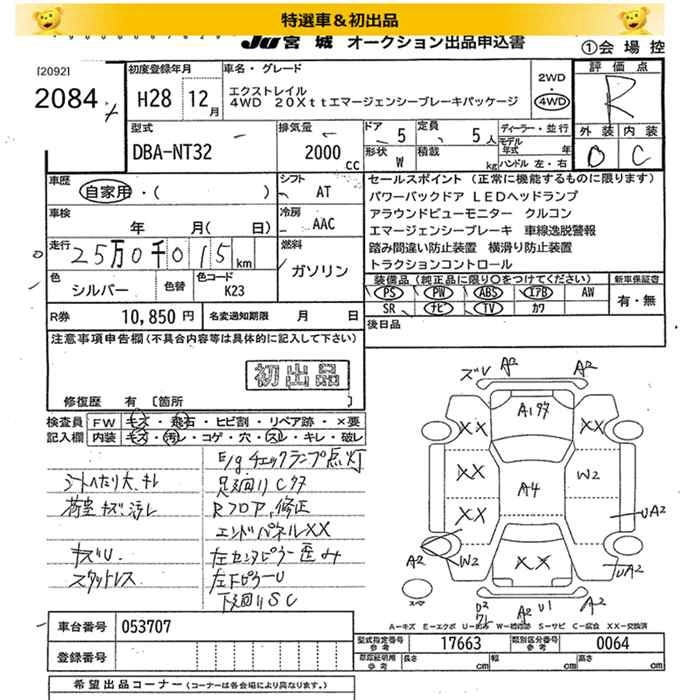 特選車＆初出品
JU 宮城 オークション出品申込書
①会場控
[2092]
2084
初度登録年月
H28 12月
車名・グレード
エクストレイル
4WD 20XttエマージェンシーブレーキパッケージJ
2WD・4WD
評価点
R
外装 内装
D C
型式
DBA-NT32
排気量
2000 cc
ドア 5
定員 5人
形状 W
積載 kg
ディーラー・並行
モデル年式 年
ハンドル 左・右
車歴
自家用・( )
シフト
AT
車検
年 月( 日)
冷房
AAC
走行
25万0千015km
燃料
ガソリン
色
シルバー
色替
色コード
K23
セールスポイント (正常に機能するものに限ります)
パワーバックドア LEDヘッドランプ
アラウンドビューモニター クルコン
エマージェンシーブレーキ 車線逸脱警報
踏み間違い防止装置 横滑り防止装置
トラクションコントロール
装備品(純正品に限り〇をつけてください)
新車保証書
PS PW ABS エアB AW
SR ナビ TV カワ
有・無
R券 10,850円
名変通知期限 月 日
後日品
注意事項申告欄(不具合内容等は具体的に記入して下さい)
初出品
修復歴 有 〔箇所
検査員記入欄
FW キズ・飛石・ヒビ割・リペア跡・×要
内装 キズ・汚レ・コゲ・穴・スレ・キレ・破レ
E/gチェックランプ点灯
シートへたり大、キレ
足廻りCサ
荷室キズ、汚レ
Rフロア、修正
エンドパネルXX
キズU
左センタピラー歪み
スタットレス
左FピラーU
下廻りSC
ズレ A2 A2
A1 XX XX
XX A4 W2
XX UA2
A2 W2 XX UA2
スペア
A2 U1 A2
A－キズ E－エクボ W－補修跡 S－サビ C－腐食 XX－交換済
車台番号 053707
型式指定番号 参考 17663
類別区分番号 参考 0064
登録番号
長さ cm 幅 cm 高さ cm
希望出品コーナー (コーナーは各会場により異なります。)